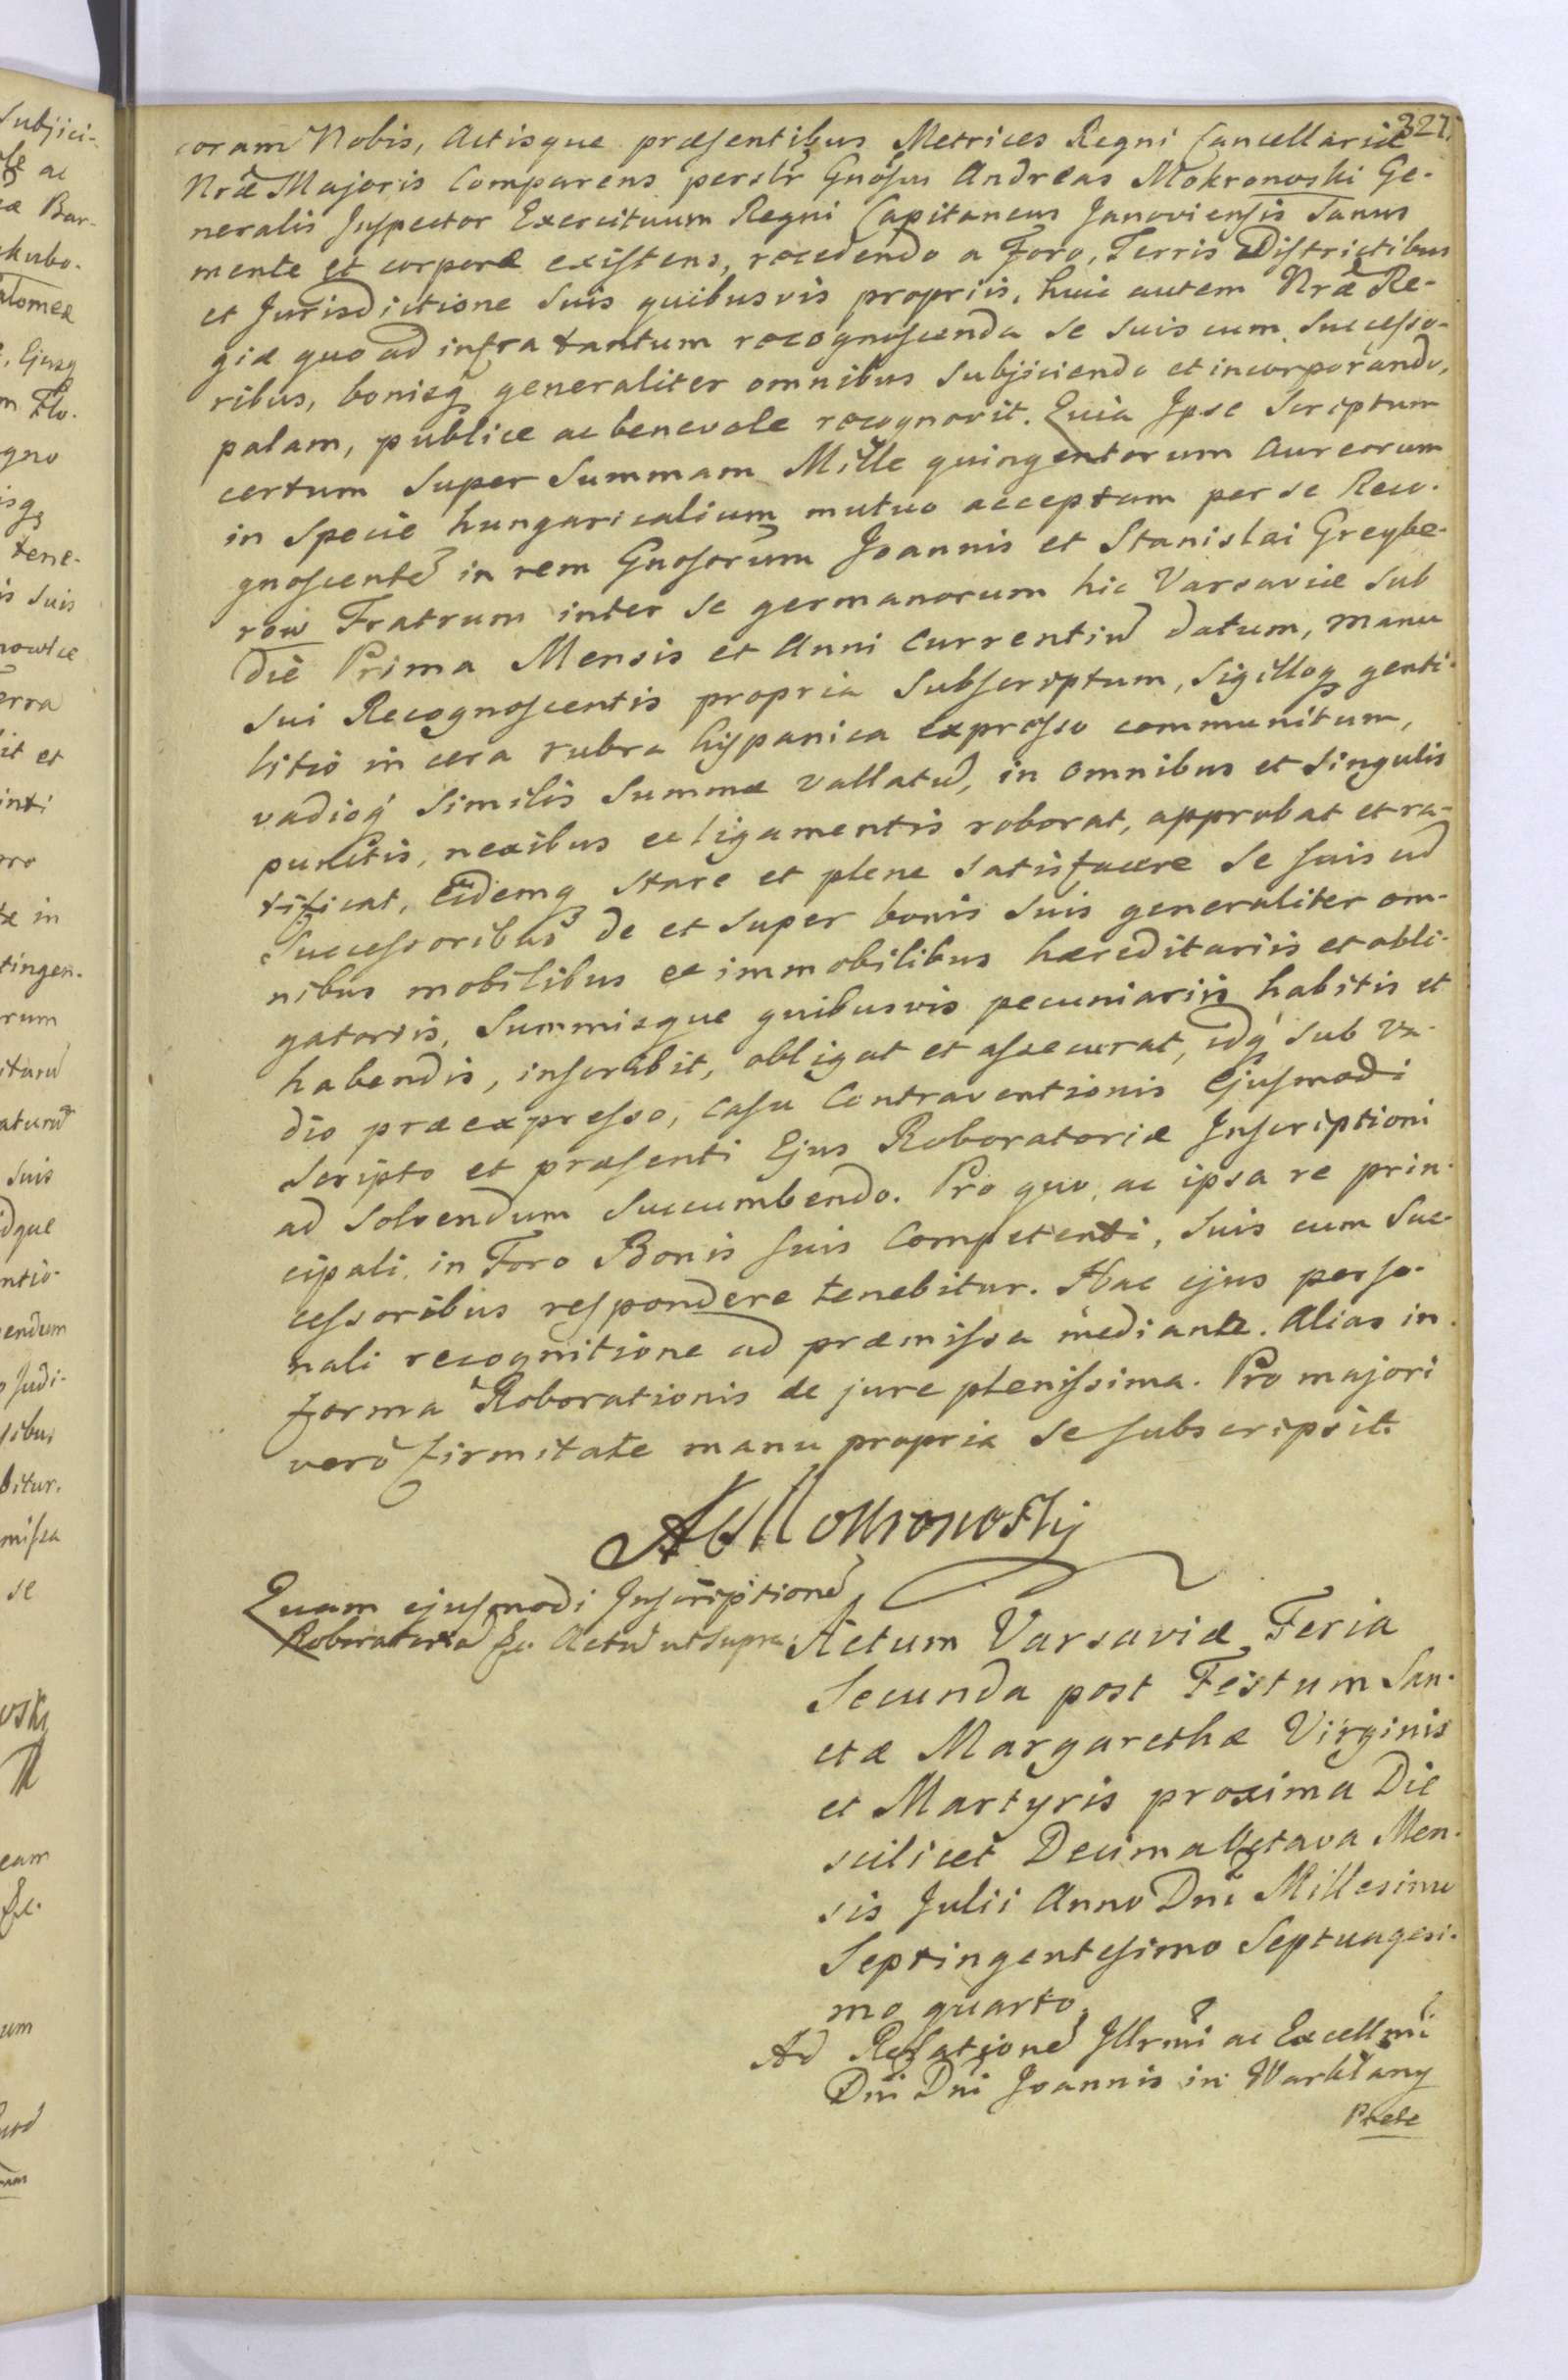 327.
coram Nobis, Actisque præsentibus Metrices Regni Cancellariæ
Nræ Majoris Comparens perslr Gnosus Andreas Mokronoski Ge-
neralis Inspector Exercituum Regni Capitaneus Janoviensis Sanus
mente et corpore existens, recedendo a Foro, Terris Districtibus
et Jurisdictione Suis quibusvis propriis, huic autem Nræ Re-
giæ quo ad infra tantum recognoscenda se suis cum Successo-
ribus, bonisq generaliter omnibus Subjiciendo et incorporando,
palam, publice ac benevole recognovit. Quia Ipse Scriptum
certum Super Summam Mille quingentorum Aureorum
in Specie hungaricalium mutuo acceptam per se Reco-
gnoscente in rem Gnosorum Joannis et Stanislai Greybe-
row Fratrum inter se germanorum hic Varsaviæ sub
die Prima Mensis et Anni Currentiu datum, manu
sui Recognoscentis propria Subscriptum, Sigilloq genti-
litio in cera rubra hispanica expresso communitum,
vadioq similis Summæ vallatu, in omnibus et singulis
punctis, nexibus et ligamentis roborat, approbat et ra-
tificat, Eidemq stare et plene Satisfacere se suis cu
Successoribus de et super bonis suis generaliter om-
nibus mobilibus et immobilibus hæreditariis et obli-
gatoriis, Summisque quibusvis pecuniariis habitis et
habendis, inscribit, obligat et assecurat, idq sub va-
dio præexpresso, casu Contraventionis Ejusmodi
Scripto et præsenti Ejus Roboratoriæ Inscriptioni
ad Solvendum Succumbendo. Pro quo, ac ipsa re prin-
cipali, in Foro Bonis suis Competenti, suis cum Suc-
cessoribus respondere tenebitur. Hac ejus perso-
nali recognitione ad præmissa mediante. Alias in
forma Roborationis de jure plenissima. Pro majori
vero firmitate manu propria se subscripsit.
AMokronosky
Quam ejusmodi Inscriptione
Roboratoria &c. Actu ut supra
Actum Varsaviæ Feria
Secunda post Festum San-
ctæ Margarethæ Virginis
et Martyris proxima Die
scilicet Decima Octava Men-
sis Julii Anno Dni Millesimo
Septingentesimo Septuagesi-
mo quarto.
Ad Relatione Illrmi ac Excellmi
Dni Dni Joannis in Warklany